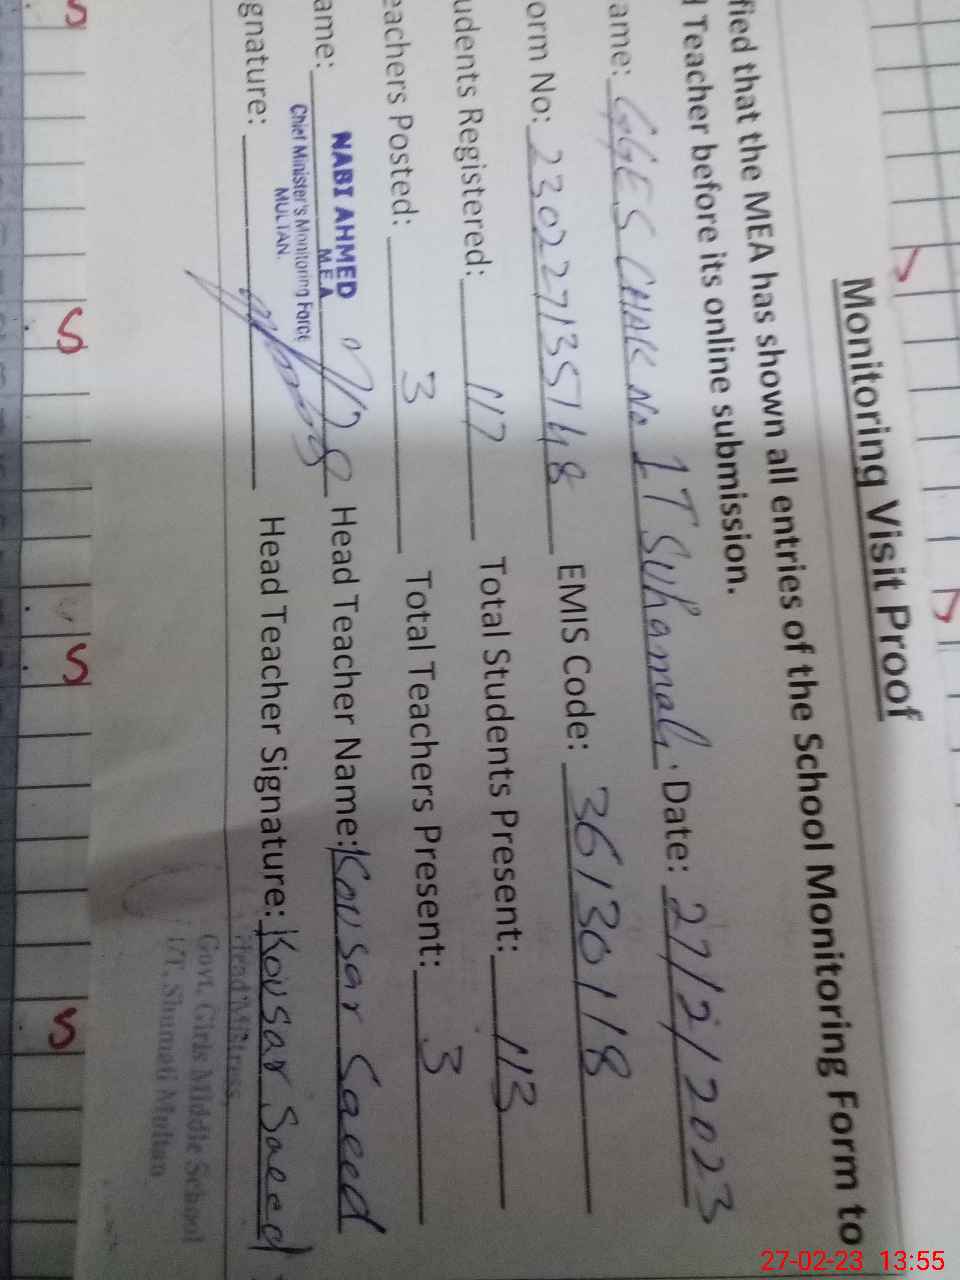 Monitoring Visit Proof
fied that the MEA has shown all entries of the School Monitoring Form to
Teacher before its online submission.
ame: GGES CHAK No 1T Suhamali. Date: 27/2/2023
orm No: 230227135748 EMIS Code: 36130118
udents Registered: 117 Total Students Present: 113
eachers Posted: 3 Total Teachers Present: 3
ame: Head Teacher Name: Kousar Saeed
NABI AHMED
M.E.A
Chief Minister's Monitoring Force
MULTAN.
gnature: Head Teacher Signature: Kousar Saeed
Head Mistress
Govt. Girls Middle School
1/T. Shumati Multan
S
S
S
S
27-02-23 13:55